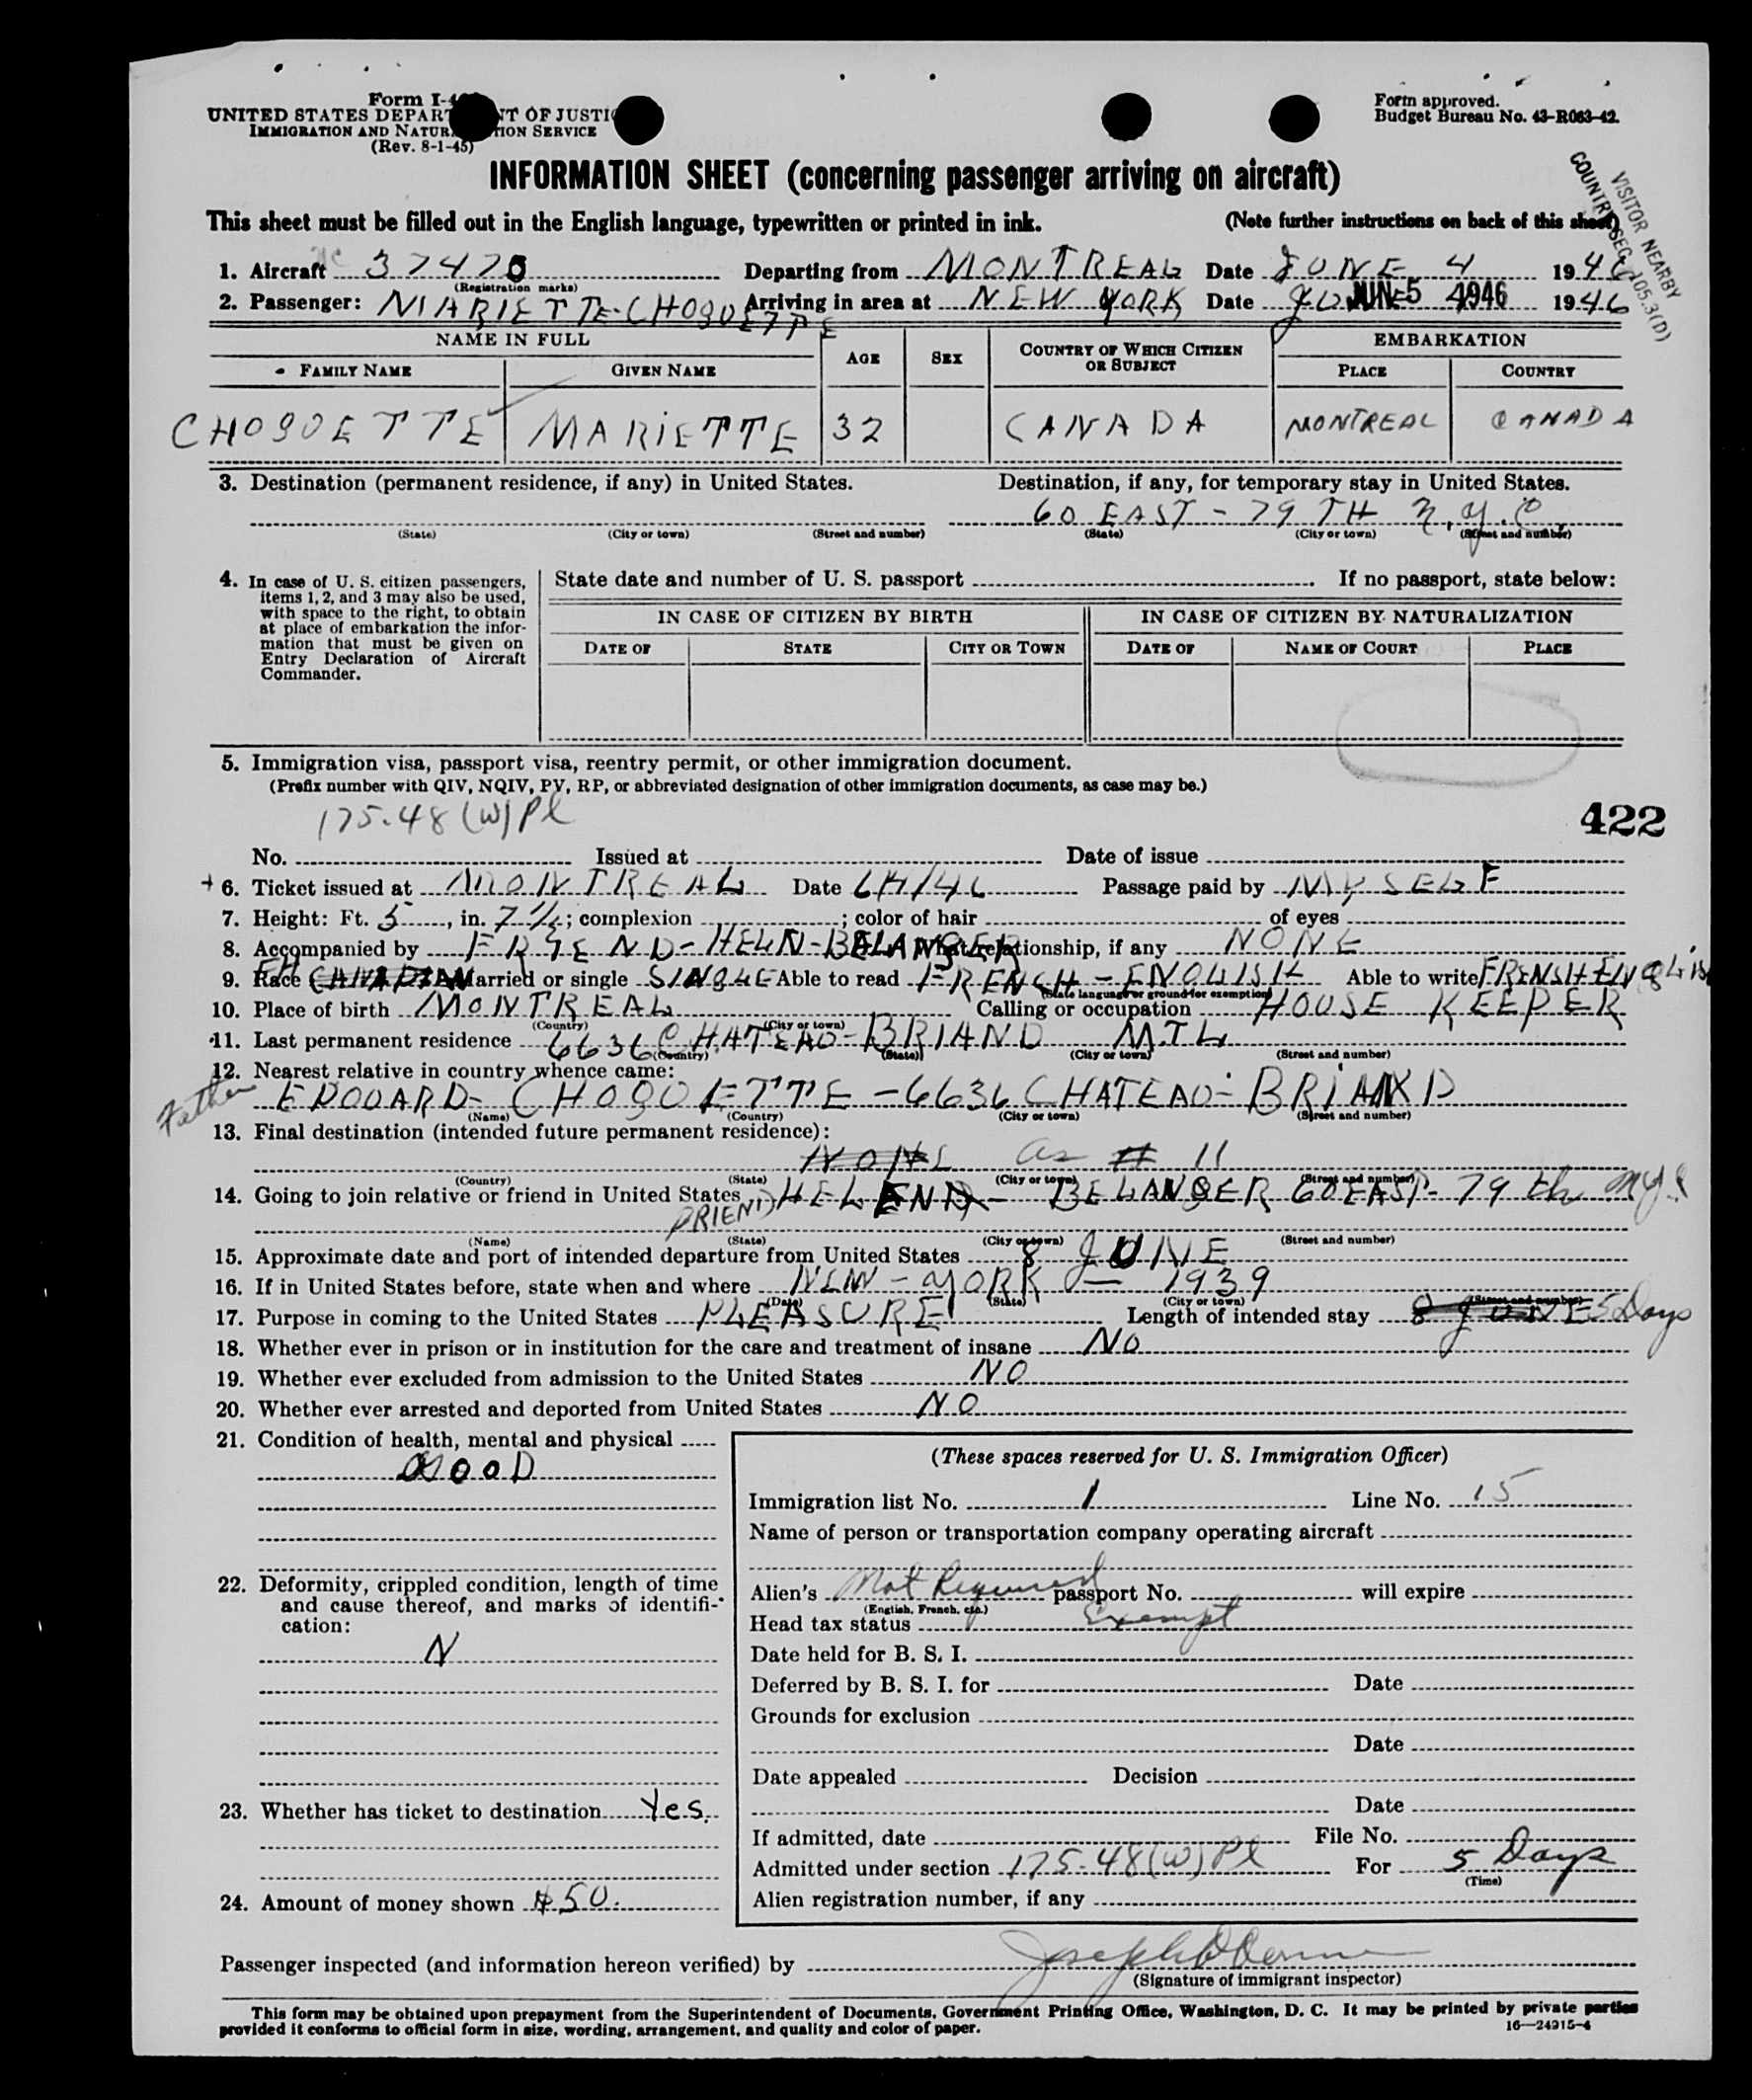 Form I-4
UNITED STATES DEPART NT OF JUSTI
IMMIGRATION AND NATUR TION SERVICE
(Rev. 8-1-45)
Form approved.
Budget Bureau No. 43-R063-42.
INFORMATION SHEET (concerning passenger arriving on aircraft)
VISITOR NEARBY
COUNTRY SEG 105.3(D)
This sheet must be filled out in the English language, typewritten or printed in ink. (Note further instructions on back of this sheet)
1. Aircraft NC 37470 Departing from MONTREAL Date JUNE 4 1946
(Registration marks)
2. Passenger: MARIETTE-CHOQUETTE Arriving in area at NEW YORK Date JUNE 5 1946 1946
NAME IN FULL AGE SEX COUNTRY OF WHICH CITIZEN OR SUBJECT EMBARKATION
FAMILY NAME GIVEN NAME PLACE COUNTRY
CHOQUETTE MARIETTE 32 CANADA MONTREAL CANADA
3. Destination (permanent residence, if any) in United States. Destination, if any, for temporary stay in United States.
60 EAST - 79 TH N.Y.C.
(State) (City or town) (Street and number) (State) (City or town) (Street and number)
4. In case of U. S. citizen passengers, items 1, 2, and 3 may also be used, with space to the right, to obtain at place of embarkation the information that must be given on Entry Declaration of Aircraft Commander.
State date and number of U. S. passport If no passport, state below:
IN CASE OF CITIZEN BY BIRTH IN CASE OF CITIZEN BY NATURALIZATION
DATE OF STATE CITY OR TOWN DATE OF NAME OF COURT PLACE
5. Immigration visa, passport visa, reentry permit, or other immigration document.
(Prefix number with QIV, NQIV, PV, RP, or abbreviated designation of other immigration documents, as case may be.)
175.48 (W) Pl
422
No. Issued at Date of issue
+ 6. Ticket issued at MONTREAL Date 6/4/46 Passage paid by MYSELF
7. Height: Ft. 5, in. 7 1/2; complexion ; color of hair of eyes
8. Accompanied by FRIEND-HELN-BELANGER What relationship, if any NONE
9. Race FH CANADIAN Married or single SINGLE Able to read FRENCH-ENGLISH Able to write FRENSH ENGLISH
(State language or ground for exemption)
10. Place of birth MONTREAL Calling or occupation HOUSE KEEPER
(Country) (City or town)
11. Last permanent residence 6636 CHATEAU-BRIAND MTL
(Country) (State) (City or town) (Street and number)
12. Nearest relative in country whence came:
Father EDOUARD- CHOQUETTE - 6636 CHATEAU-BRIAND
(Name) (Country) (City or town) (Street and number)
13. Final destination (intended future permanent residence):
NONE as # 11
(Country) (State) (City or town) (Street and number)
14. Going to join relative or friend in United States HELENA- BELANGER 60 EAST- 79 th NYC
FRIEND
(Name) (State) (City or town) (Street and number)
15. Approximate date and port of intended departure from United States 8 JUNE
16. If in United States before, state when and where NEW-YORK - 1939
(Date) (State) (City or town) (Street and number)
17. Purpose in coming to the United States PLEASURE Length of intended stay 8 JUNE 5 Days
18. Whether ever in prison or in institution for the care and treatment of insane NO
19. Whether ever excluded from admission to the United States NO
20. Whether ever arrested and deported from United States NO
21. Condition of health, mental and physical
GOOD
22. Deformity, crippled condition, length of time and cause thereof, and marks of identification:
N
23. Whether has ticket to destination Yes.
24. Amount of money shown $50.
(These spaces reserved for U. S. Immigration Officer)
Immigration list No. 1 Line No. 15
Name of person or transportation company operating aircraft
Alien's Not Required passport No. will expire
(English, French, etc.)
Head tax status Exempt
Date held for B. S. I.
Deferred by B. S. I. for Date
Grounds for exclusion
Date
Date appealed Decision
Date
If admitted, date File No.
Admitted under section 175.48(W) Pl For 5 Days
(Time)
Alien registration number, if any
Passenger inspected (and information hereon verified) by Joseph
(Signature of immigrant inspector)
This form may be obtained upon prepayment from the Superintendent of Documents, Government Printing Office, Washington, D. C. It may be printed by private parties
provided it conforms to official form in size, wording, arrangement, and quality and color of paper.
16—24915-4